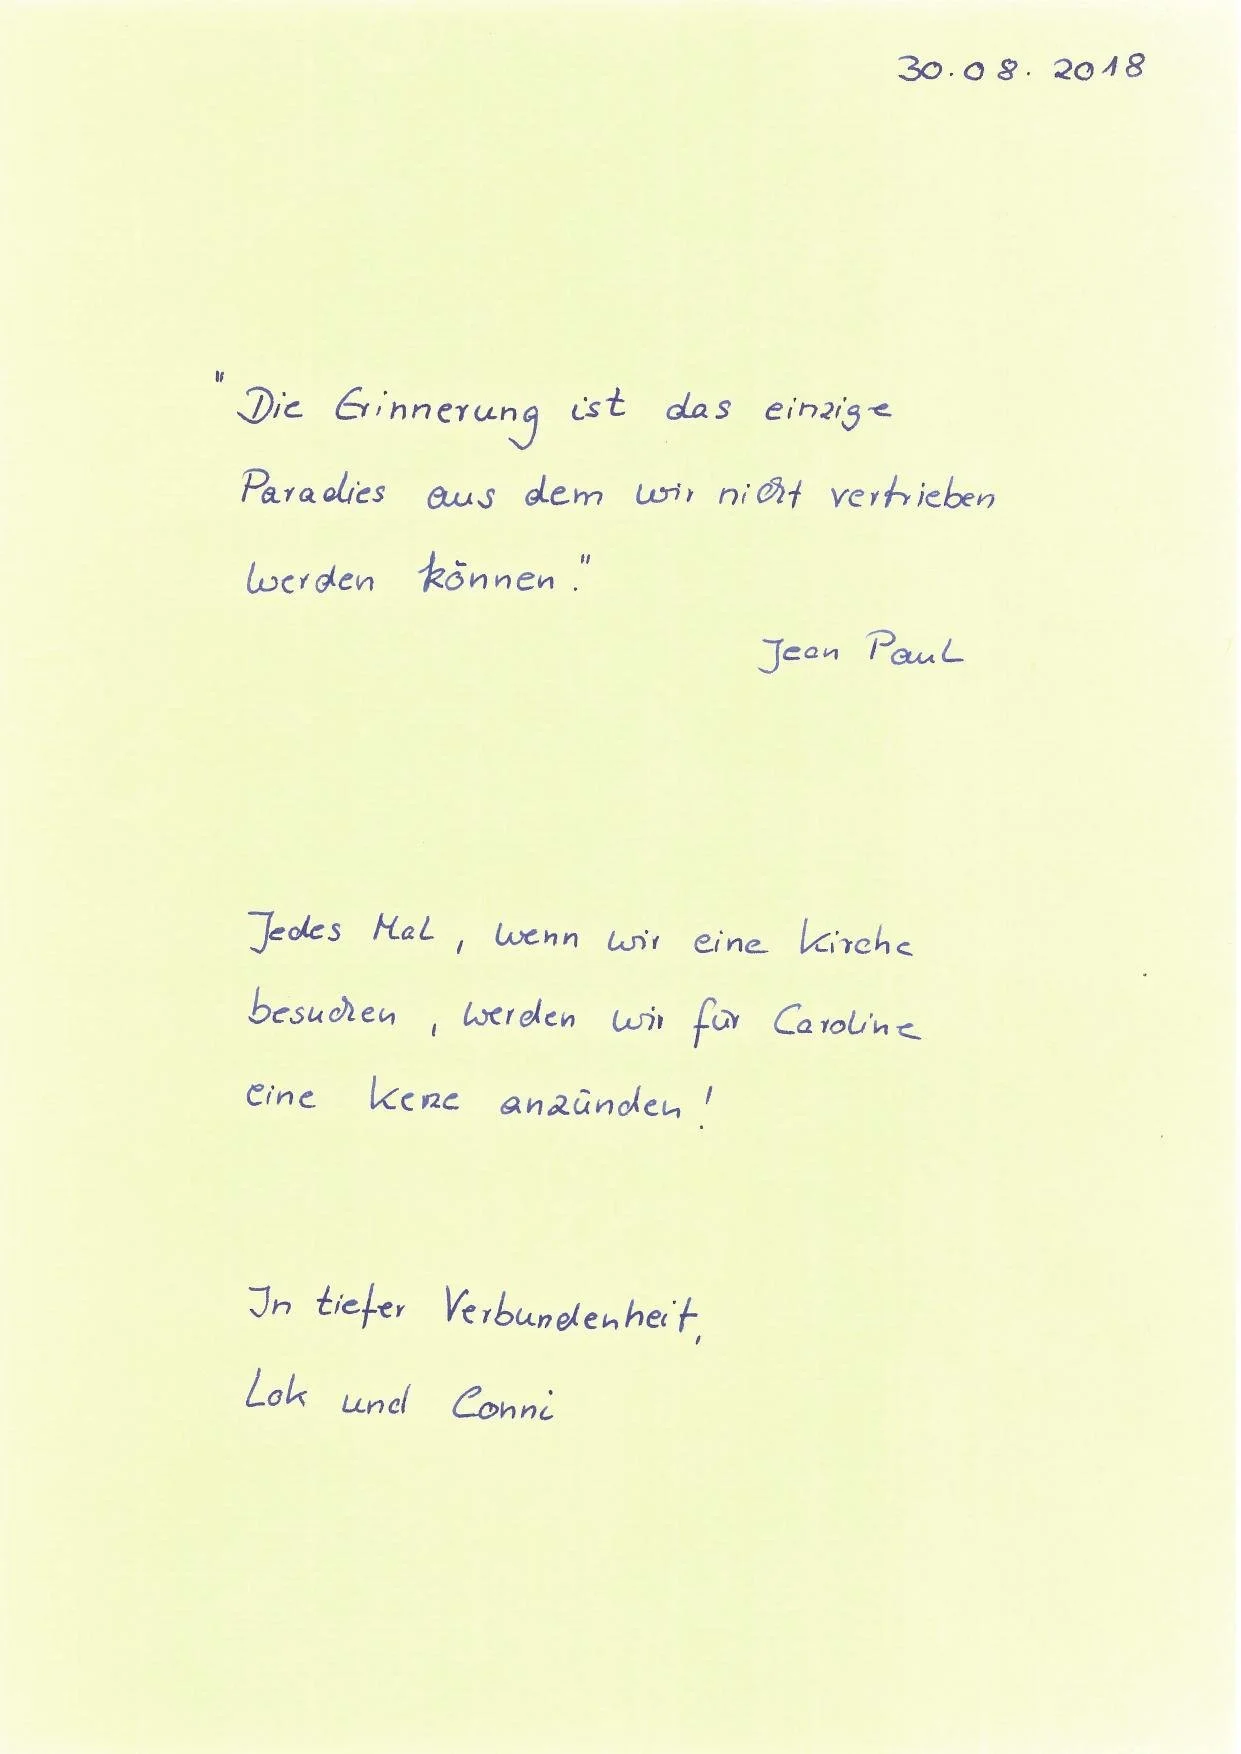 30.08.2018
"Die Erinnerung ist das einzige
Paradies aus dem wir nicht vertrieben
werden können."
Jean Paul
Jedes Mal, wenn wir eine Kirche
besuchen, werden wir für Caroline
eine Kerze anzünden!
In tiefer Verbundenheit,
Lok und Conni